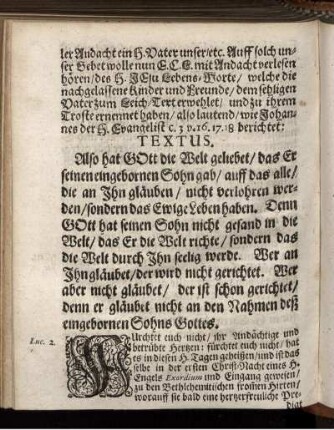 ler Andacht ein H. Vater unser/etc. Auff solch un-
ser Gebet wolle nun E.C.L. mit Andacht verlesen
hören/des H. JEsu Lebens-Worte/ welche die
nachgelassene Kinder und Freunde/ dem sehligen
Vater zum Leich-Text erwehlet/ und zu ihrem
Troste ernennet haben/ also lautend/ wie Johan-
nes der H. Evangelist c. 3 v. 16. 17. 18 berichtet:
TEXTUS.
Also hat GOtt die Welt geliebet/ das Er
seinen eingebornen Sohn gab/ auff das alle/
die an Ihn gläuben/ nicht verlohren wer-
den/ sondern das Ewige Leben haben. Denn
GOtt hat seinen Sohn nicht gesand in die
Welt/ das Er die Welt richte/ sondern das
die Welt durch Ihn seelig werde. Wer an
Ihn gläubet/ der wird nicht gerichtet. Wer
aber nicht gläubet/ der ist schon gerichtet/
denn er gläubet nicht an den Nahmen deß
eingebornen Sohns Gottes.
Luc. 2.
FUrchtet euch nicht/ ihr Andächtige und
betrübte Hertzen: fürchtet euch nicht/ hat
es in diesen H. Tagen geheissen/ und ist das
selbe in der ersten Christ-Nacht eines H.
Engels Exordium und Eingang gewesen/
zu den Bethlehemitischen frommen Hirten/
worauff sie bald eine hertzerfreuliche Pre-
digt